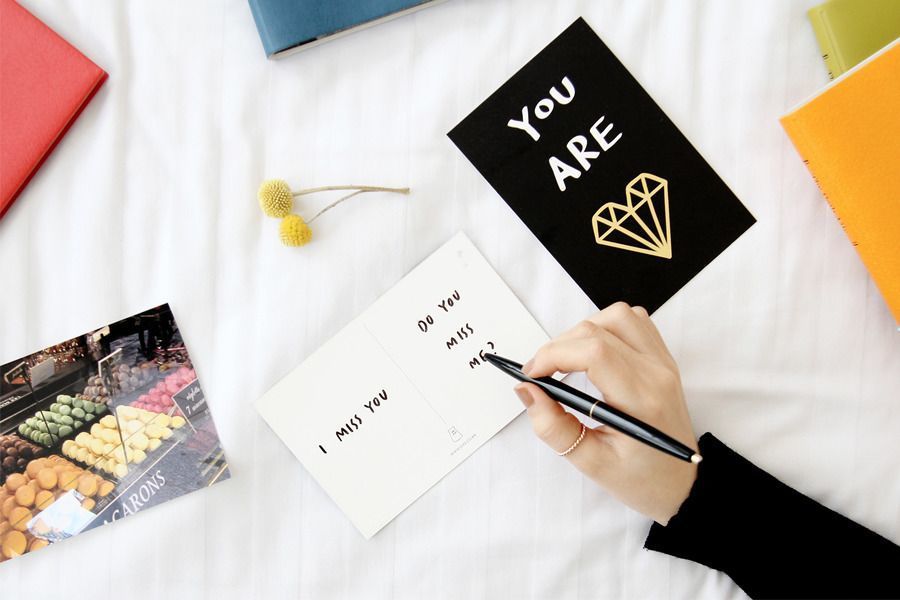 YOU
ARE
DO YOU
MISS
ME?
I MISS YOU
ACARONS